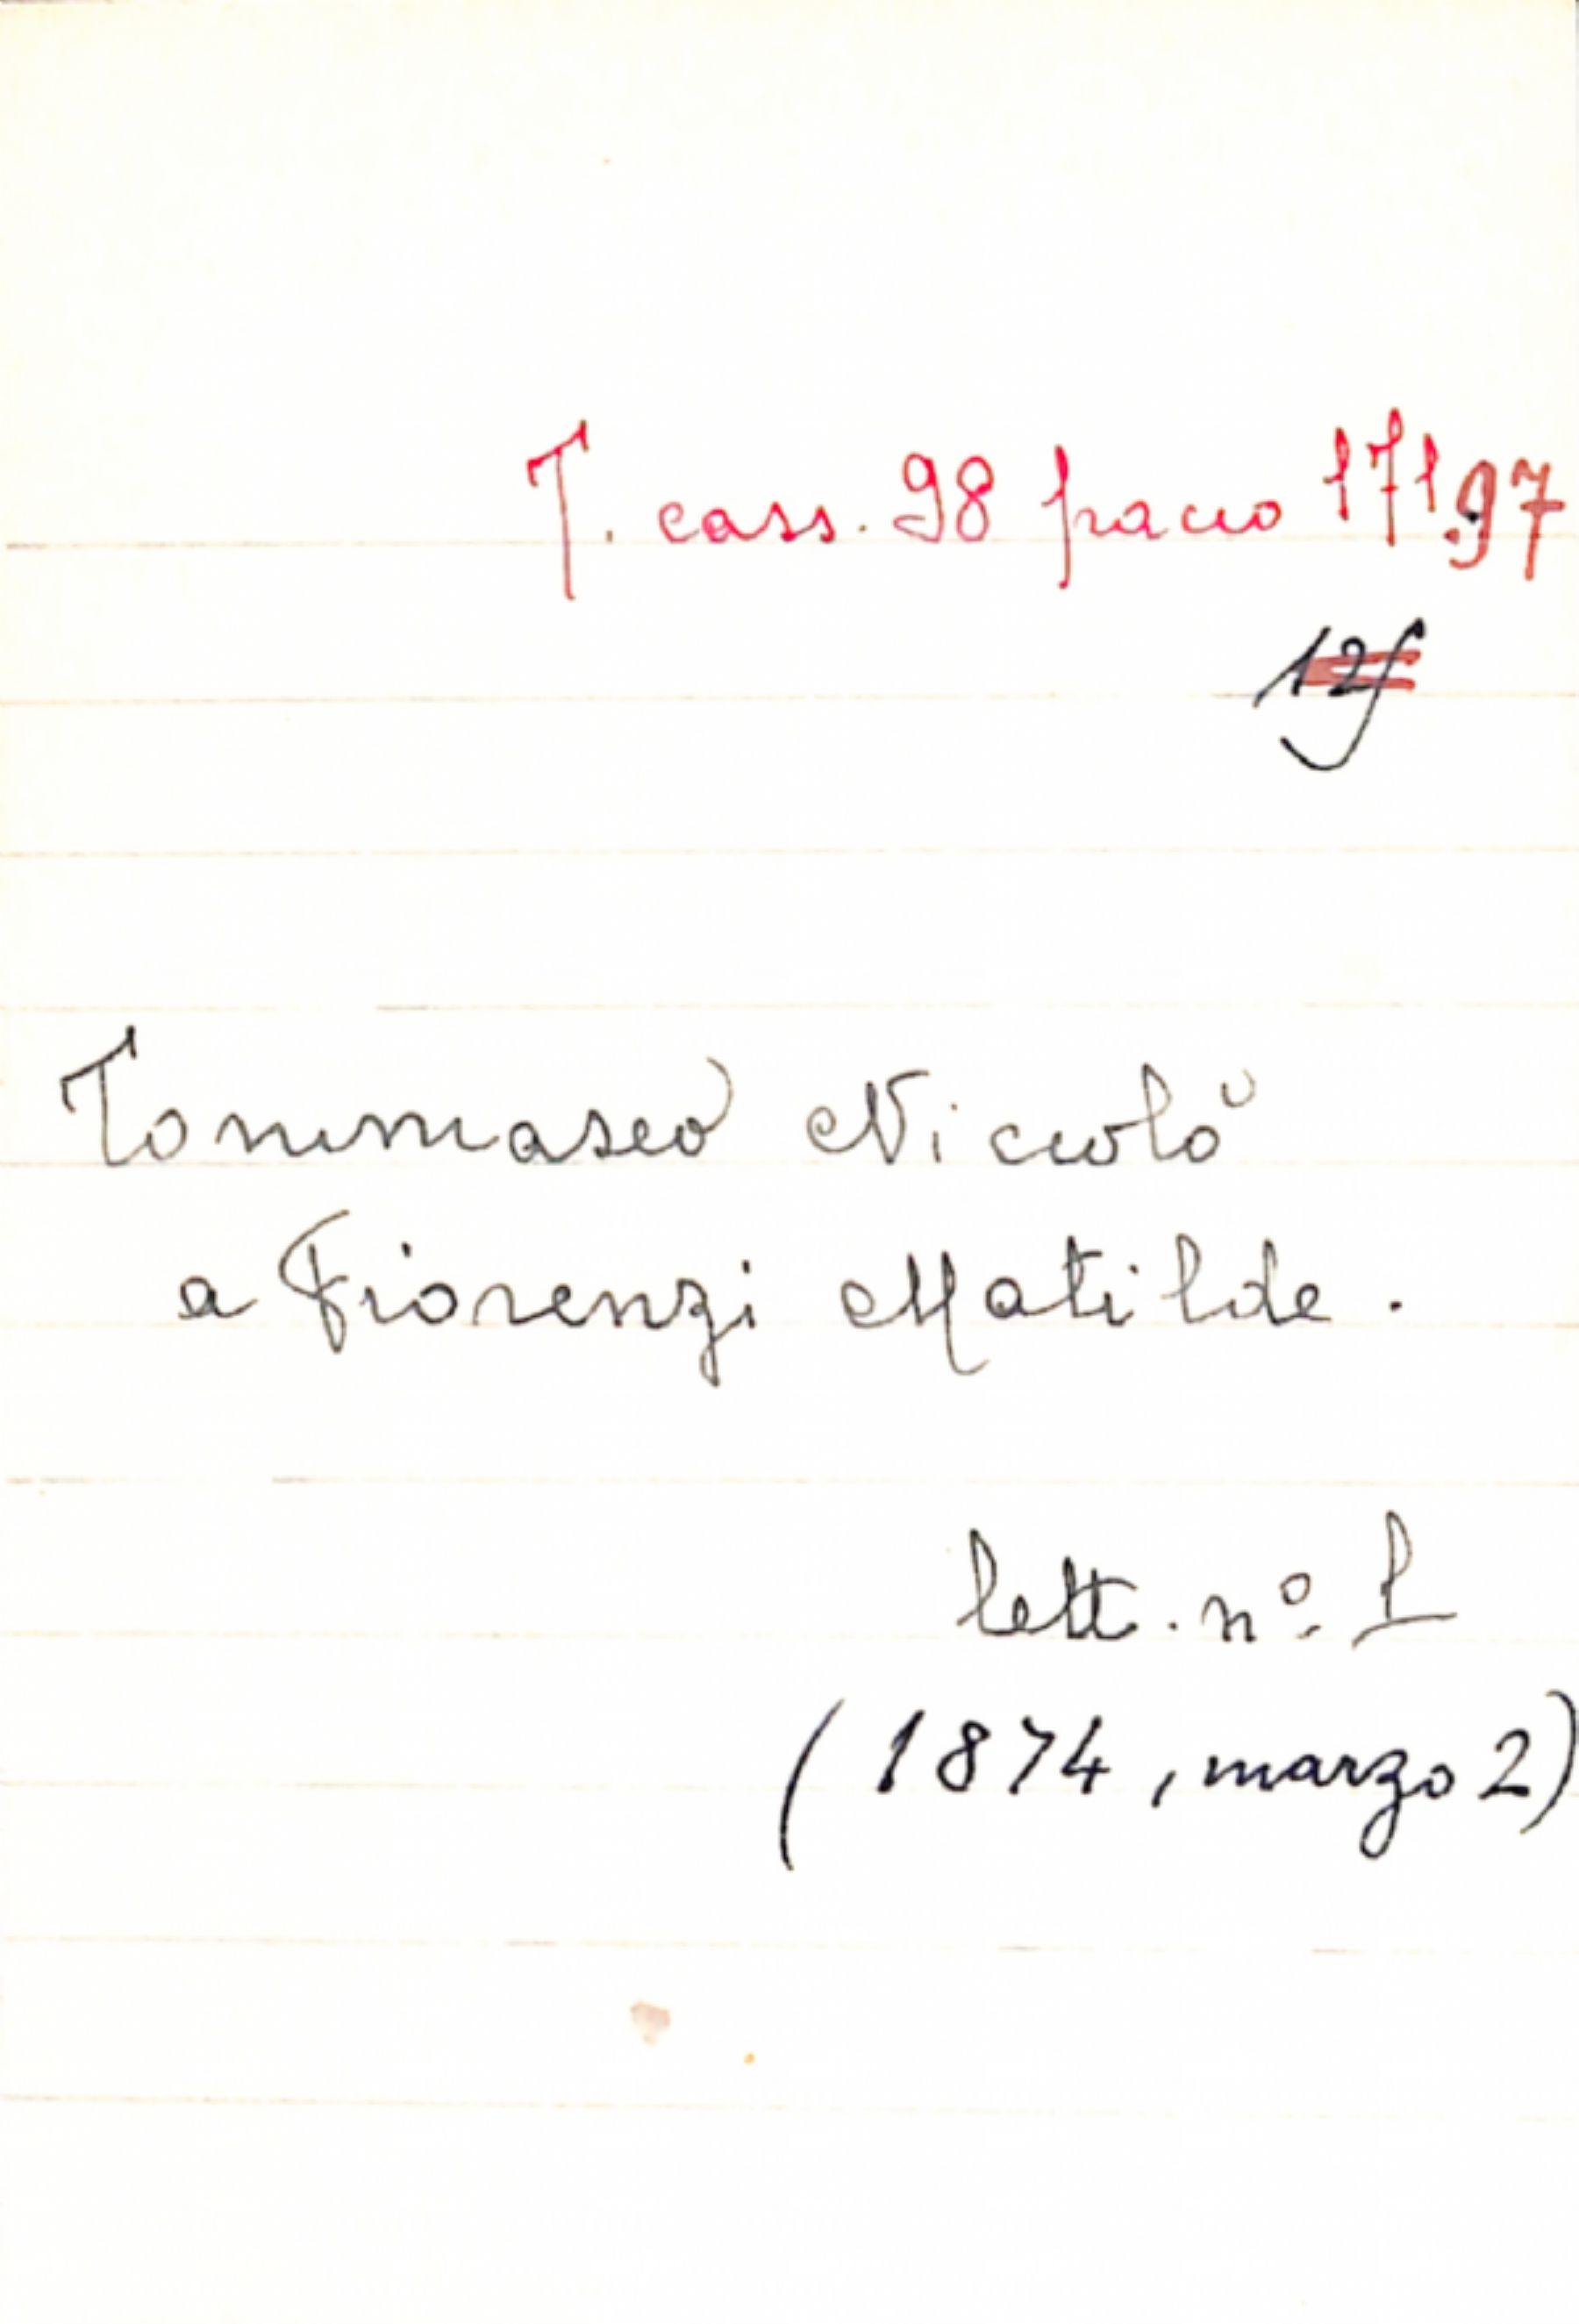 T. cass. 98 pacco 171.97
Tommaseo Niccolò
a Fiorenzi Matilde.
lett. nº. 1
(1874, marzo 2)